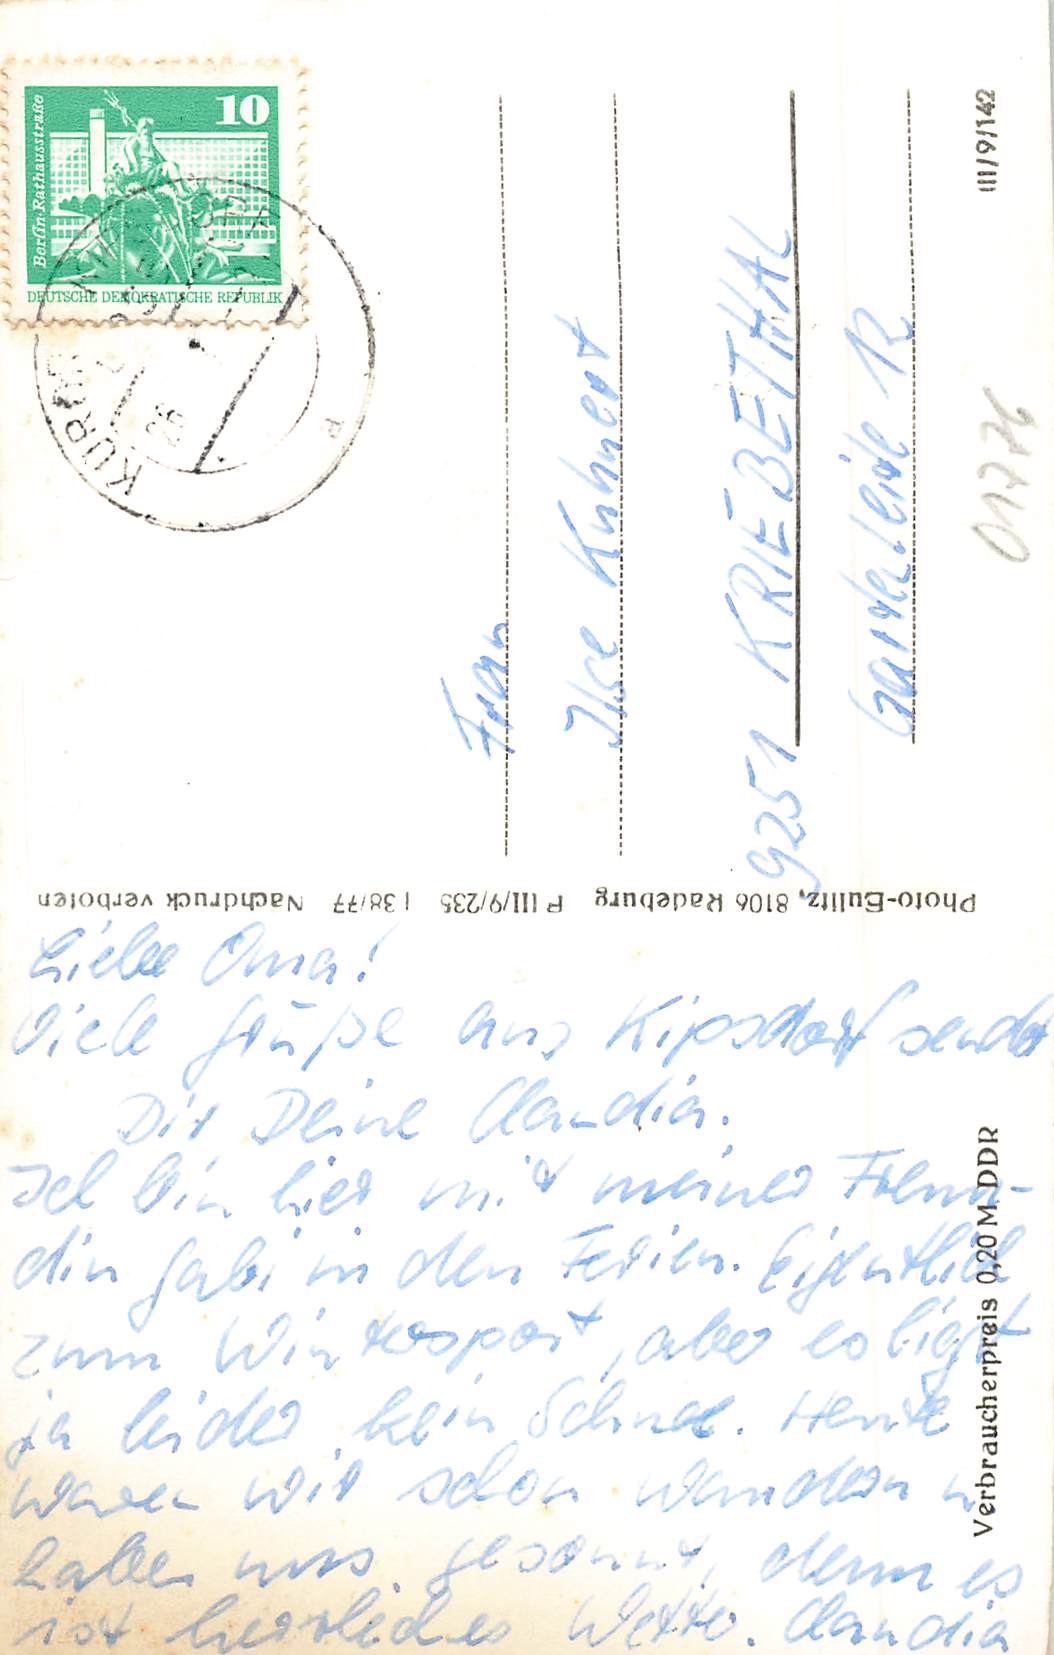 10
Berlin·Rathausstraße
DEUTSCHE DEMOKRATISCHE REPUBLIK
KURORT
III/9/142
01776
Frau
Ilse Kuhnert
9251 KRIEBETHAL
Gartenleite 12
Photo-Eulitz, 8106 Radeburg P III/9/235 I 38/77 Nachdruck verboten
Verbraucherpreis 0,20 M DDR
Liebe Oma!
Viele Grüße aus Kipsdorf sendet
Dir Deine Claudia.
Ich bin hier mit meiner Freun-
din Gabi in den Ferien. Eigentlich
zum Wintersport, aber es liegt
ja leider kein Schnee. Heute
waren wir schon wandern u.
haben uns gesonnt, denn es
ist herrliches Wetter. Claudia